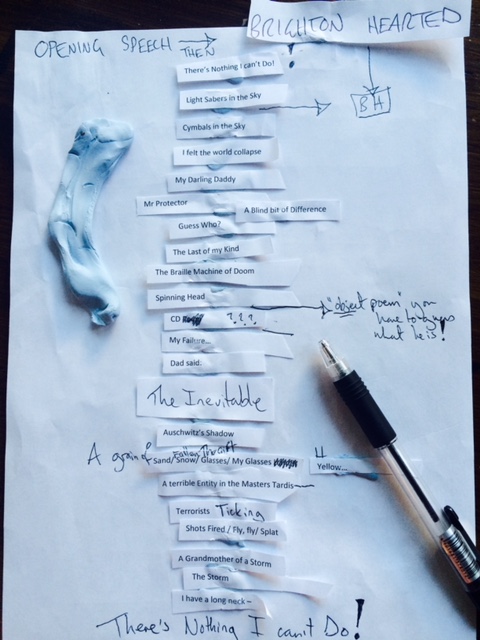 BRIGHTON HEARTED
OPENING SPEECH → THEN
There's Nothing I can't Do! !
Light Sabers in the Sky → BH
Cymbals in the Sky
I felt the world collapse
My Darling Daddy
Mr Protector
A Blind bit of Difference
Guess Who?
The Last of my Kind
The Braille Machine of Doom
Spinning Head
"object poem" you
have to guess
what he is!
CD ???
My Failure...
Dad said.
The Inevitable
Auschwitz's Shadow
A grain of Sand/Snow/ Glasses/ My Glasses
Yellow...
A terrible Entity in the Masters Tardis
Terrorists Ticking
Shots Fired / Fly, fly/ Splat
A Grandmother of a Storm
The Storm
I have a long neck –
There's Nothing I can't Do!